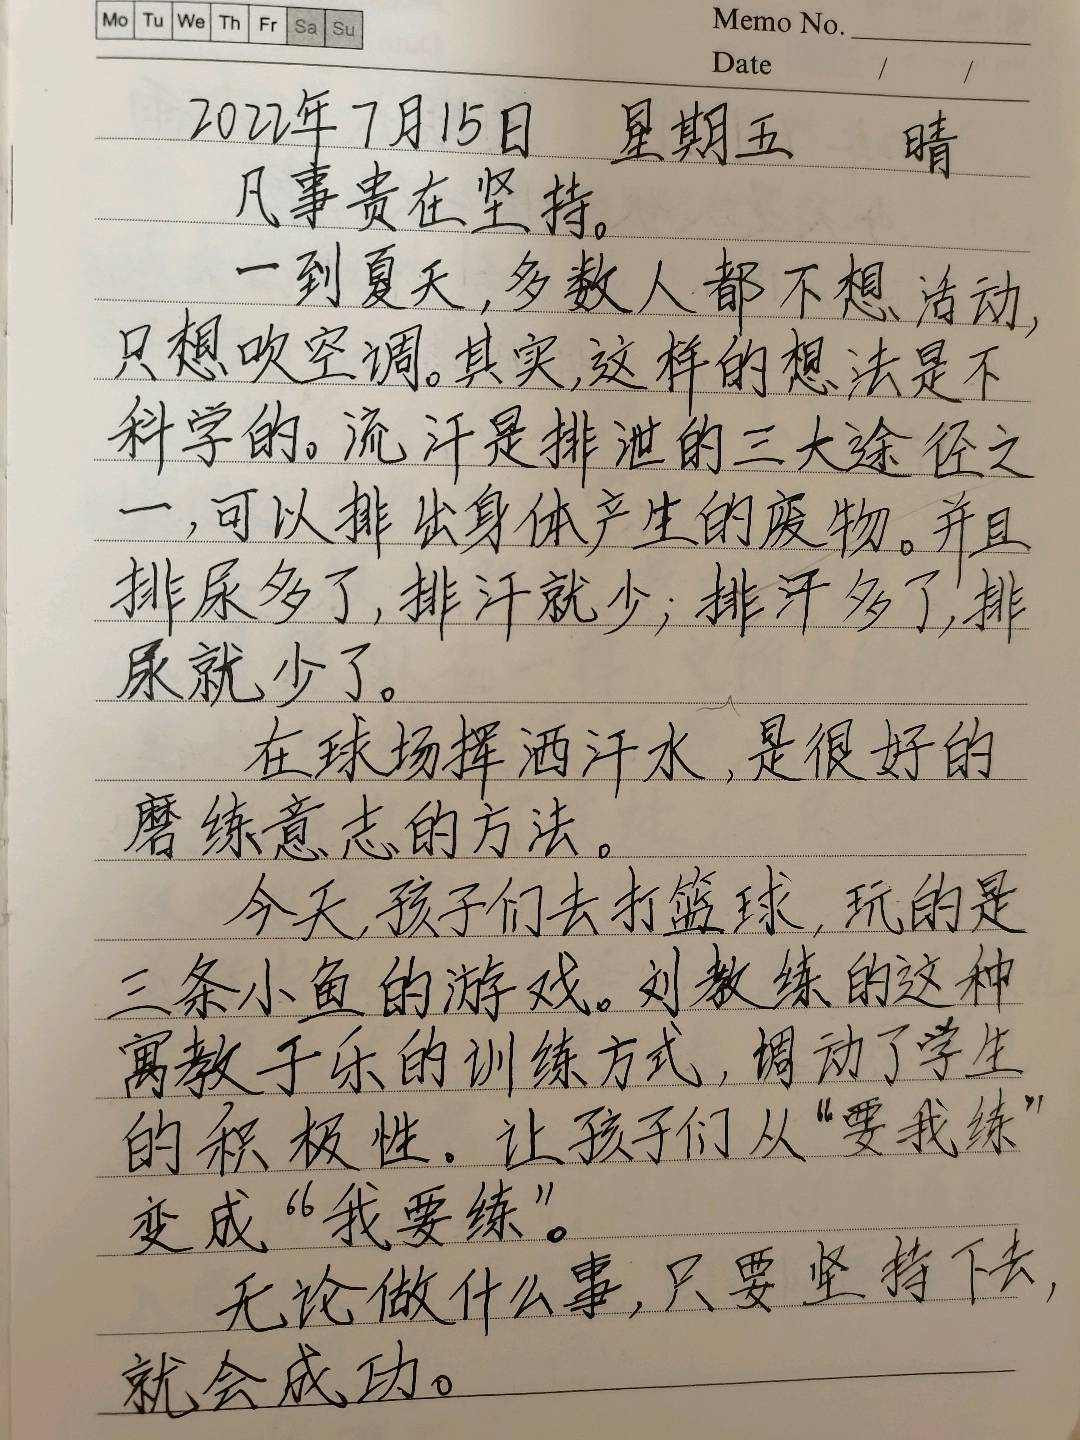 Mo Tu We Th Fr Sa Su
Memo No.
Date / /
2022年7月15日 星期五 晴
凡事贵在坚持。
一到夏天,多数人都不想活动,
只想吹空调。其实,这样的想法是不
科学的。流汗是排泄的三大途径之
一,可以排出身体产生的废物。并且
排尿多了,排汗就少;排汗多了,排
尿就少了。
在球场挥洒汗水,是很好的
磨练意志的方法。
今天,孩子们去打篮球,玩的是
三条小鱼的游戏。刘教练的这种
寓教于乐的训练方式,调动了学生
的积极性。让孩子们从“要我练”
变成“我要练”。
无论做什么事,只要坚持下去,
就会成功。